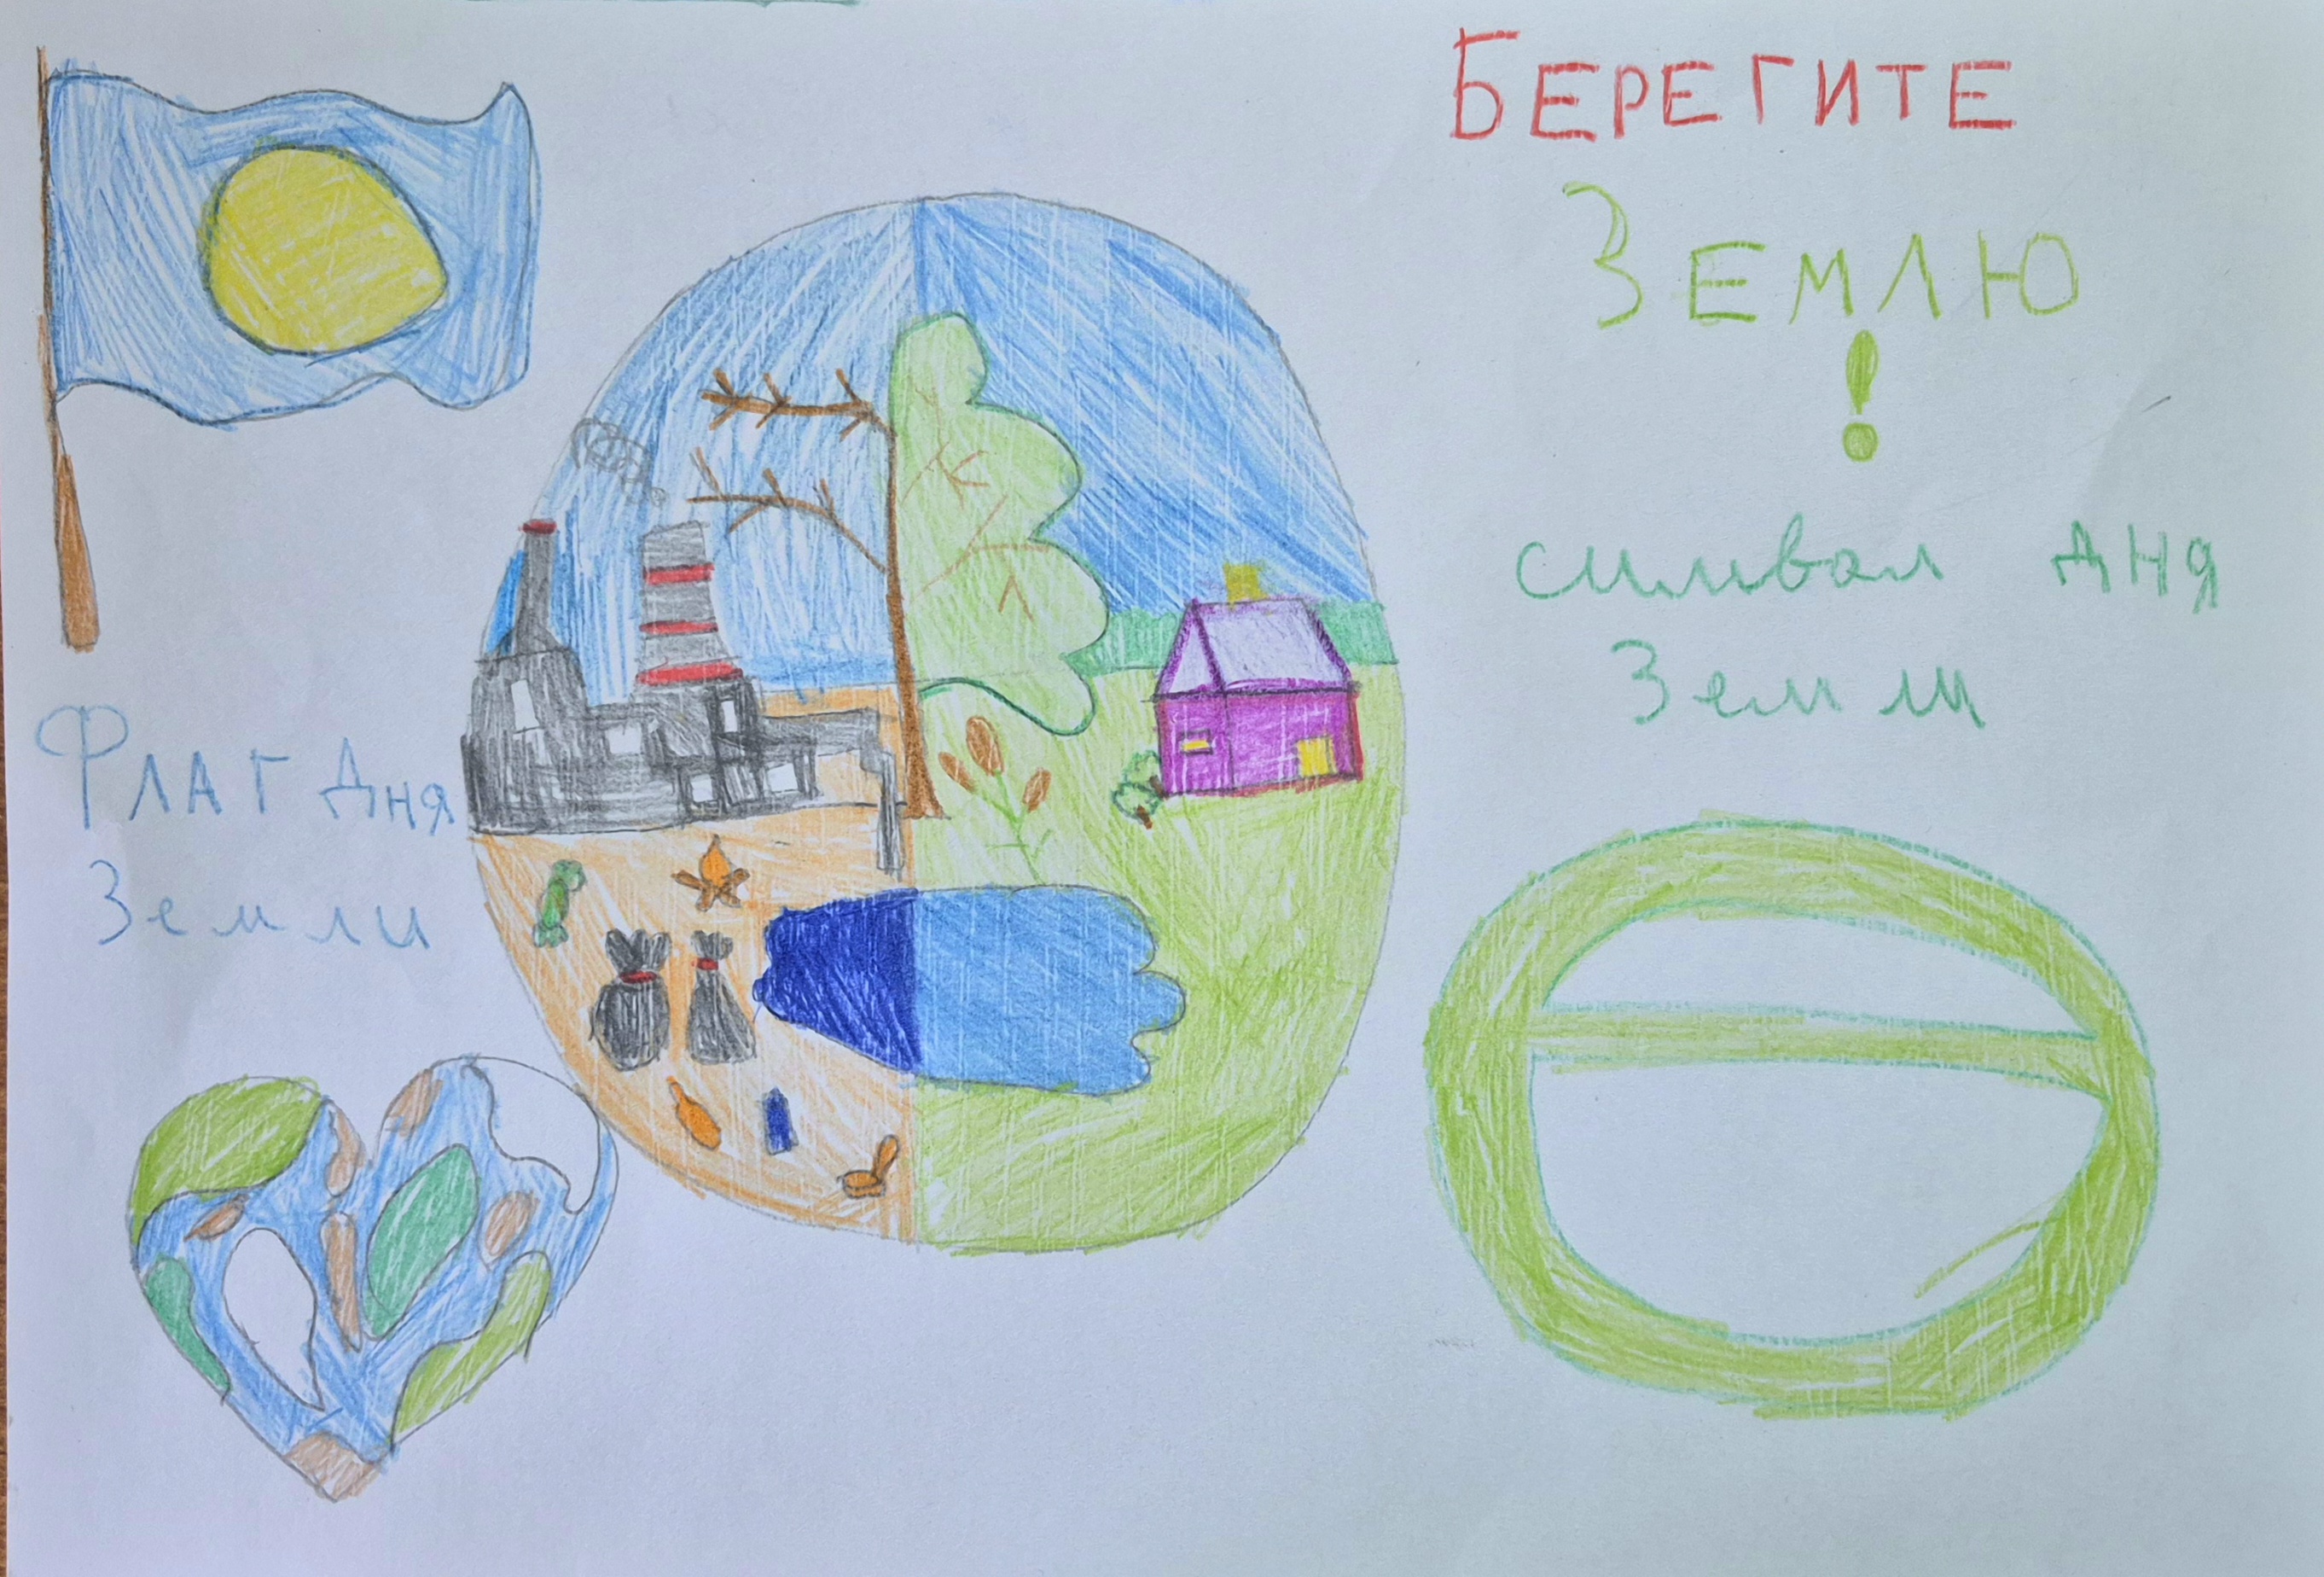 БЕРЕГИТЕ
ЗЕМЛЮ
!
символ дня
Земли
Флаг Дня
Земли